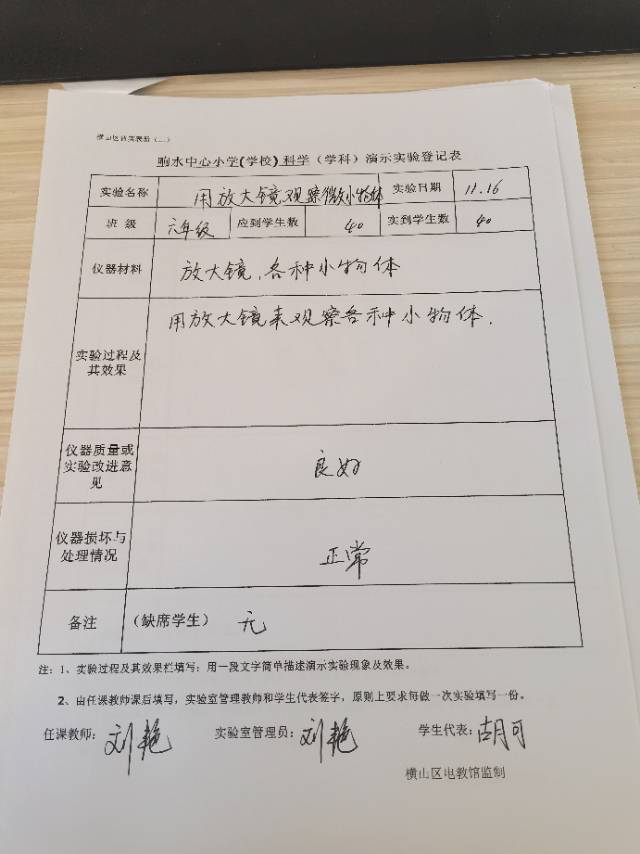 响水中心小学(学校)科学(学科)演示实验登记表
实验名称 用放大镜观察微小物体 实验日期 11.16
班 级 六年级 应到学生数 40 实到学生数 40
仪器材料 放大镜、各种小物体
实验过程及其效果 用放大镜来观察各种小物体.
仪器质量或实验改进意见 良好
仪器损坏与处理情况 正常
备注 (缺席学生) 无
注:1、实验过程及其效果栏填写:用一段文字简单描述演示实验现象及效果。
2、由任课教师课后填写,实验室管理教师和学生代表签字,原则上要求每做一次实验填写一份。
任课教师:刘艳 实验室管理员:刘艳 学生代表:胡可
横山区电教馆监制